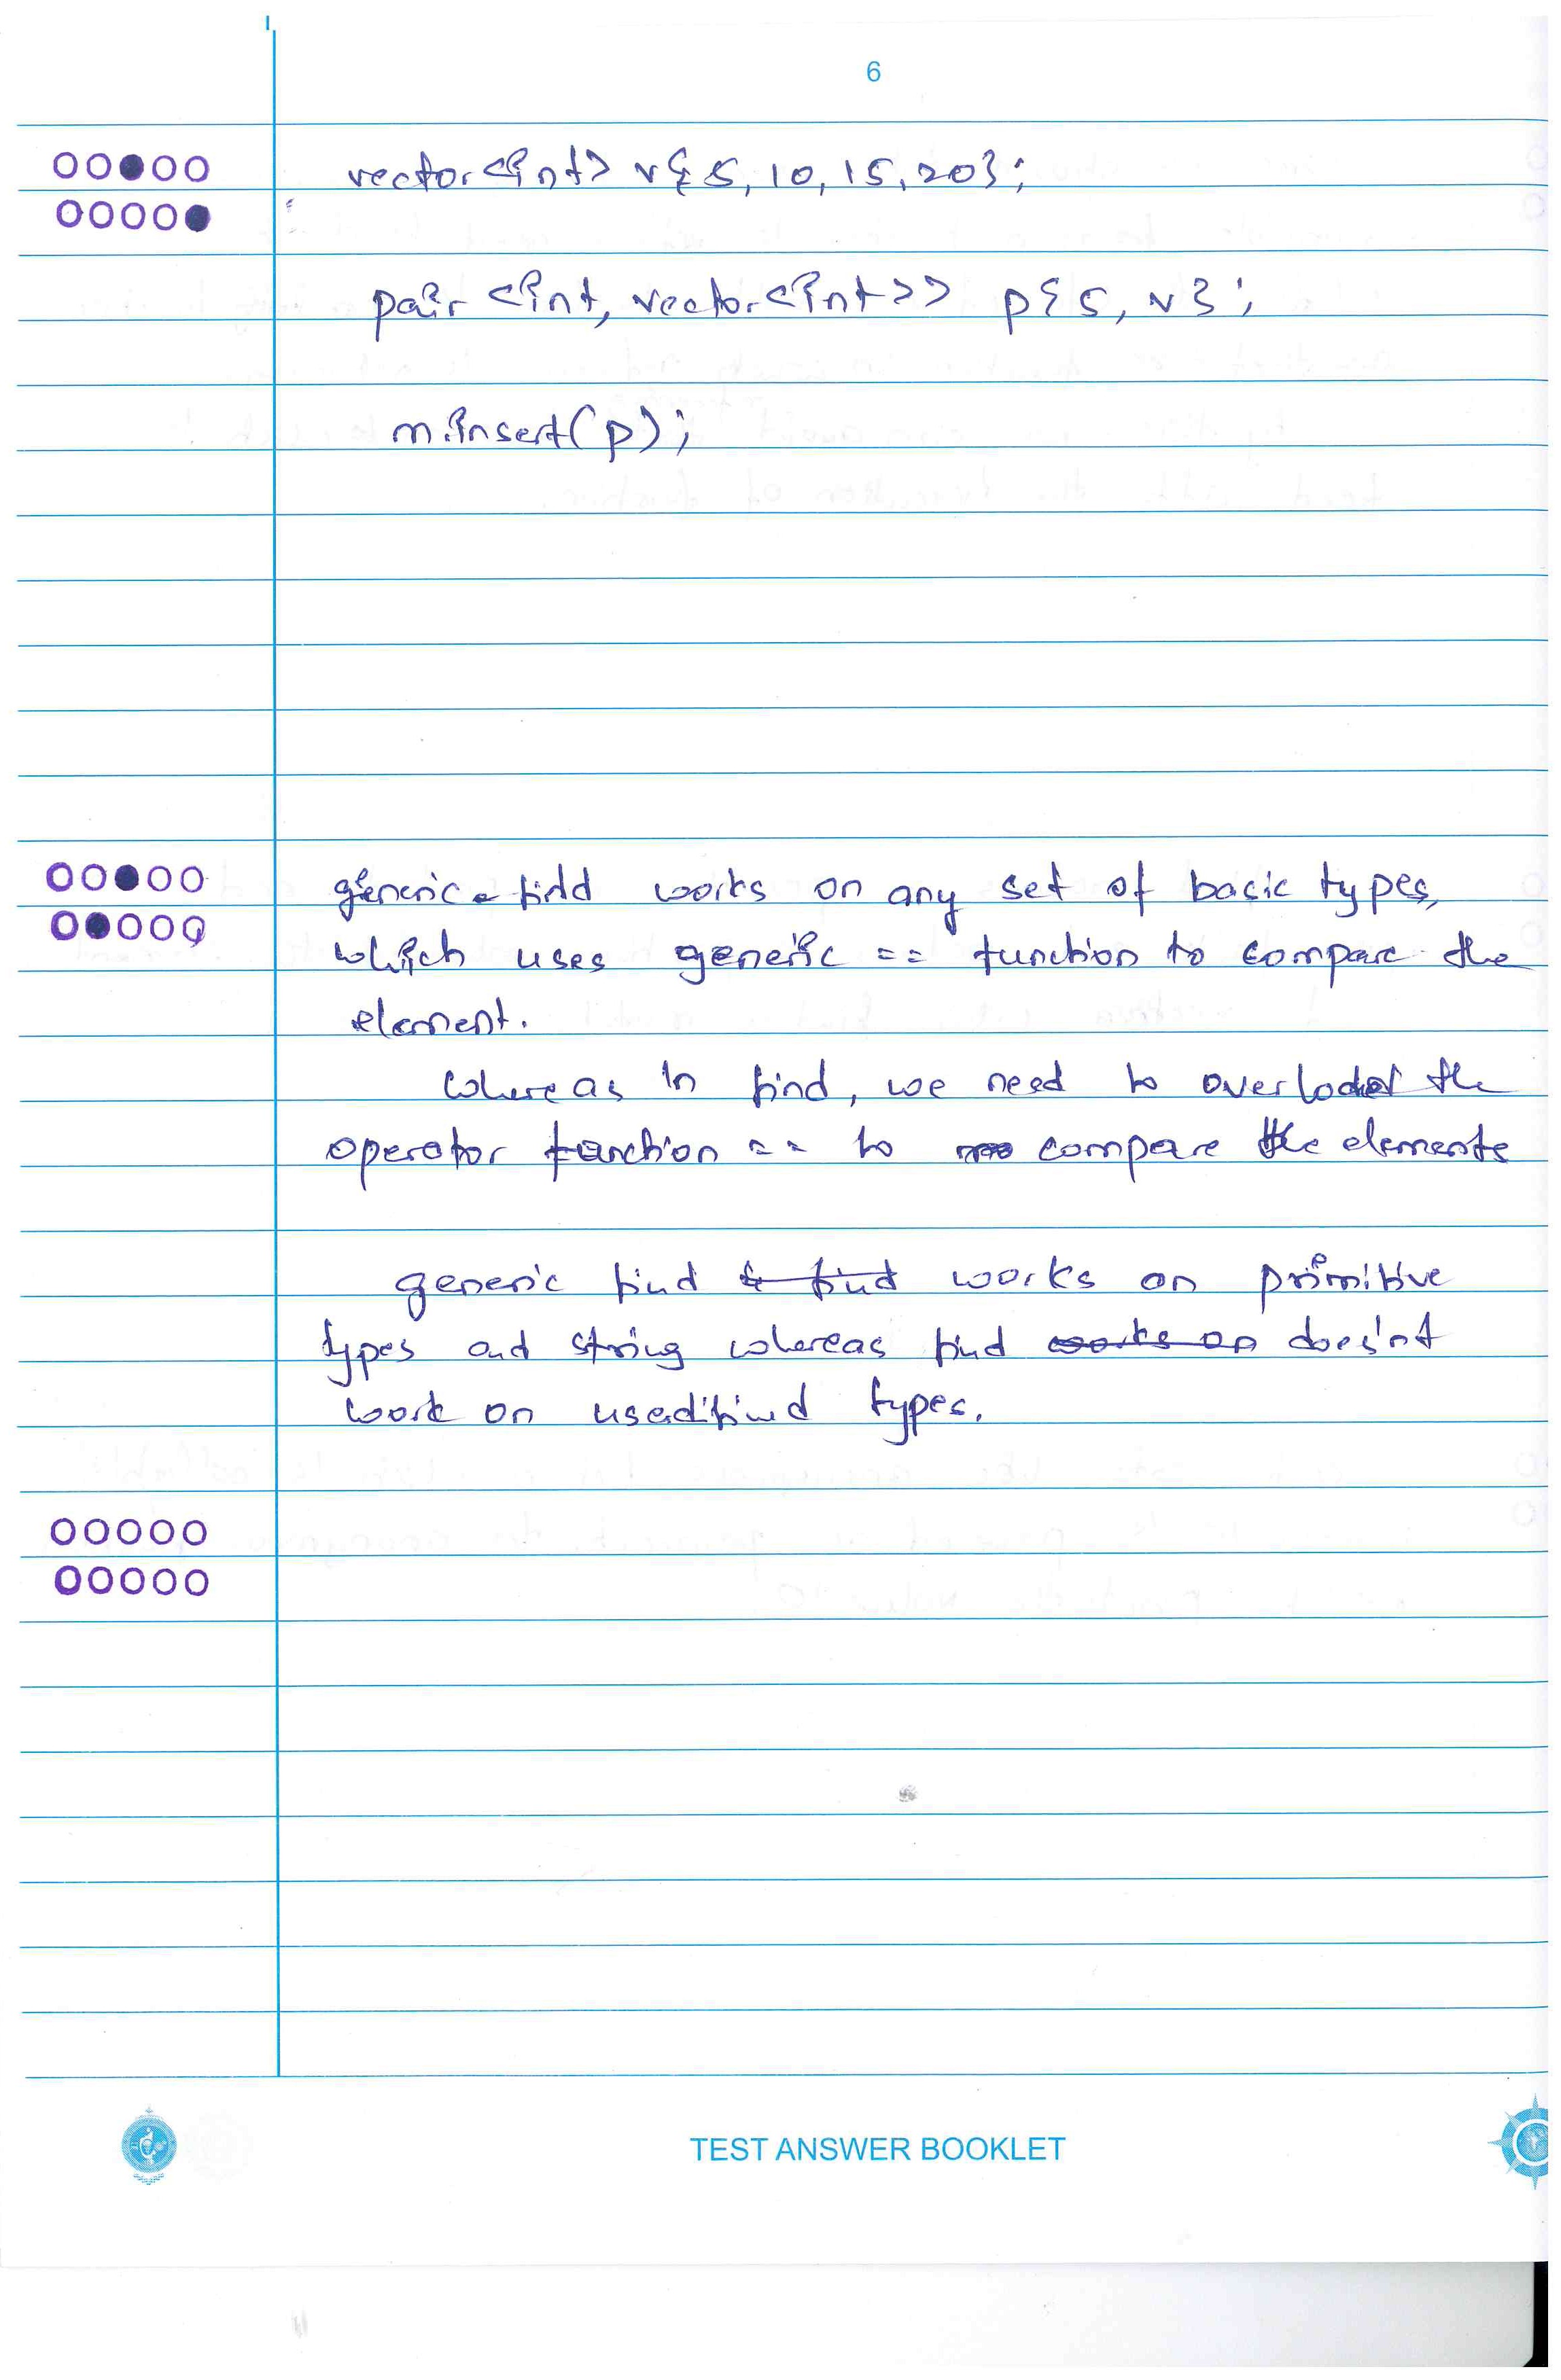 6
vector<int> v{5, 10, 15, 20};
pair <int, vector<int>> p{5, v};
m.insert(p);
generic find works on any set of basic types,
which uses generic == function to compare the
element.
Whereas in find, we need to overload the
operator function == to compare the elements
generic find & find works on primitive
types and string whereas find works on does'nt
work on userdifind types.
TEST ANSWER BOOKLET